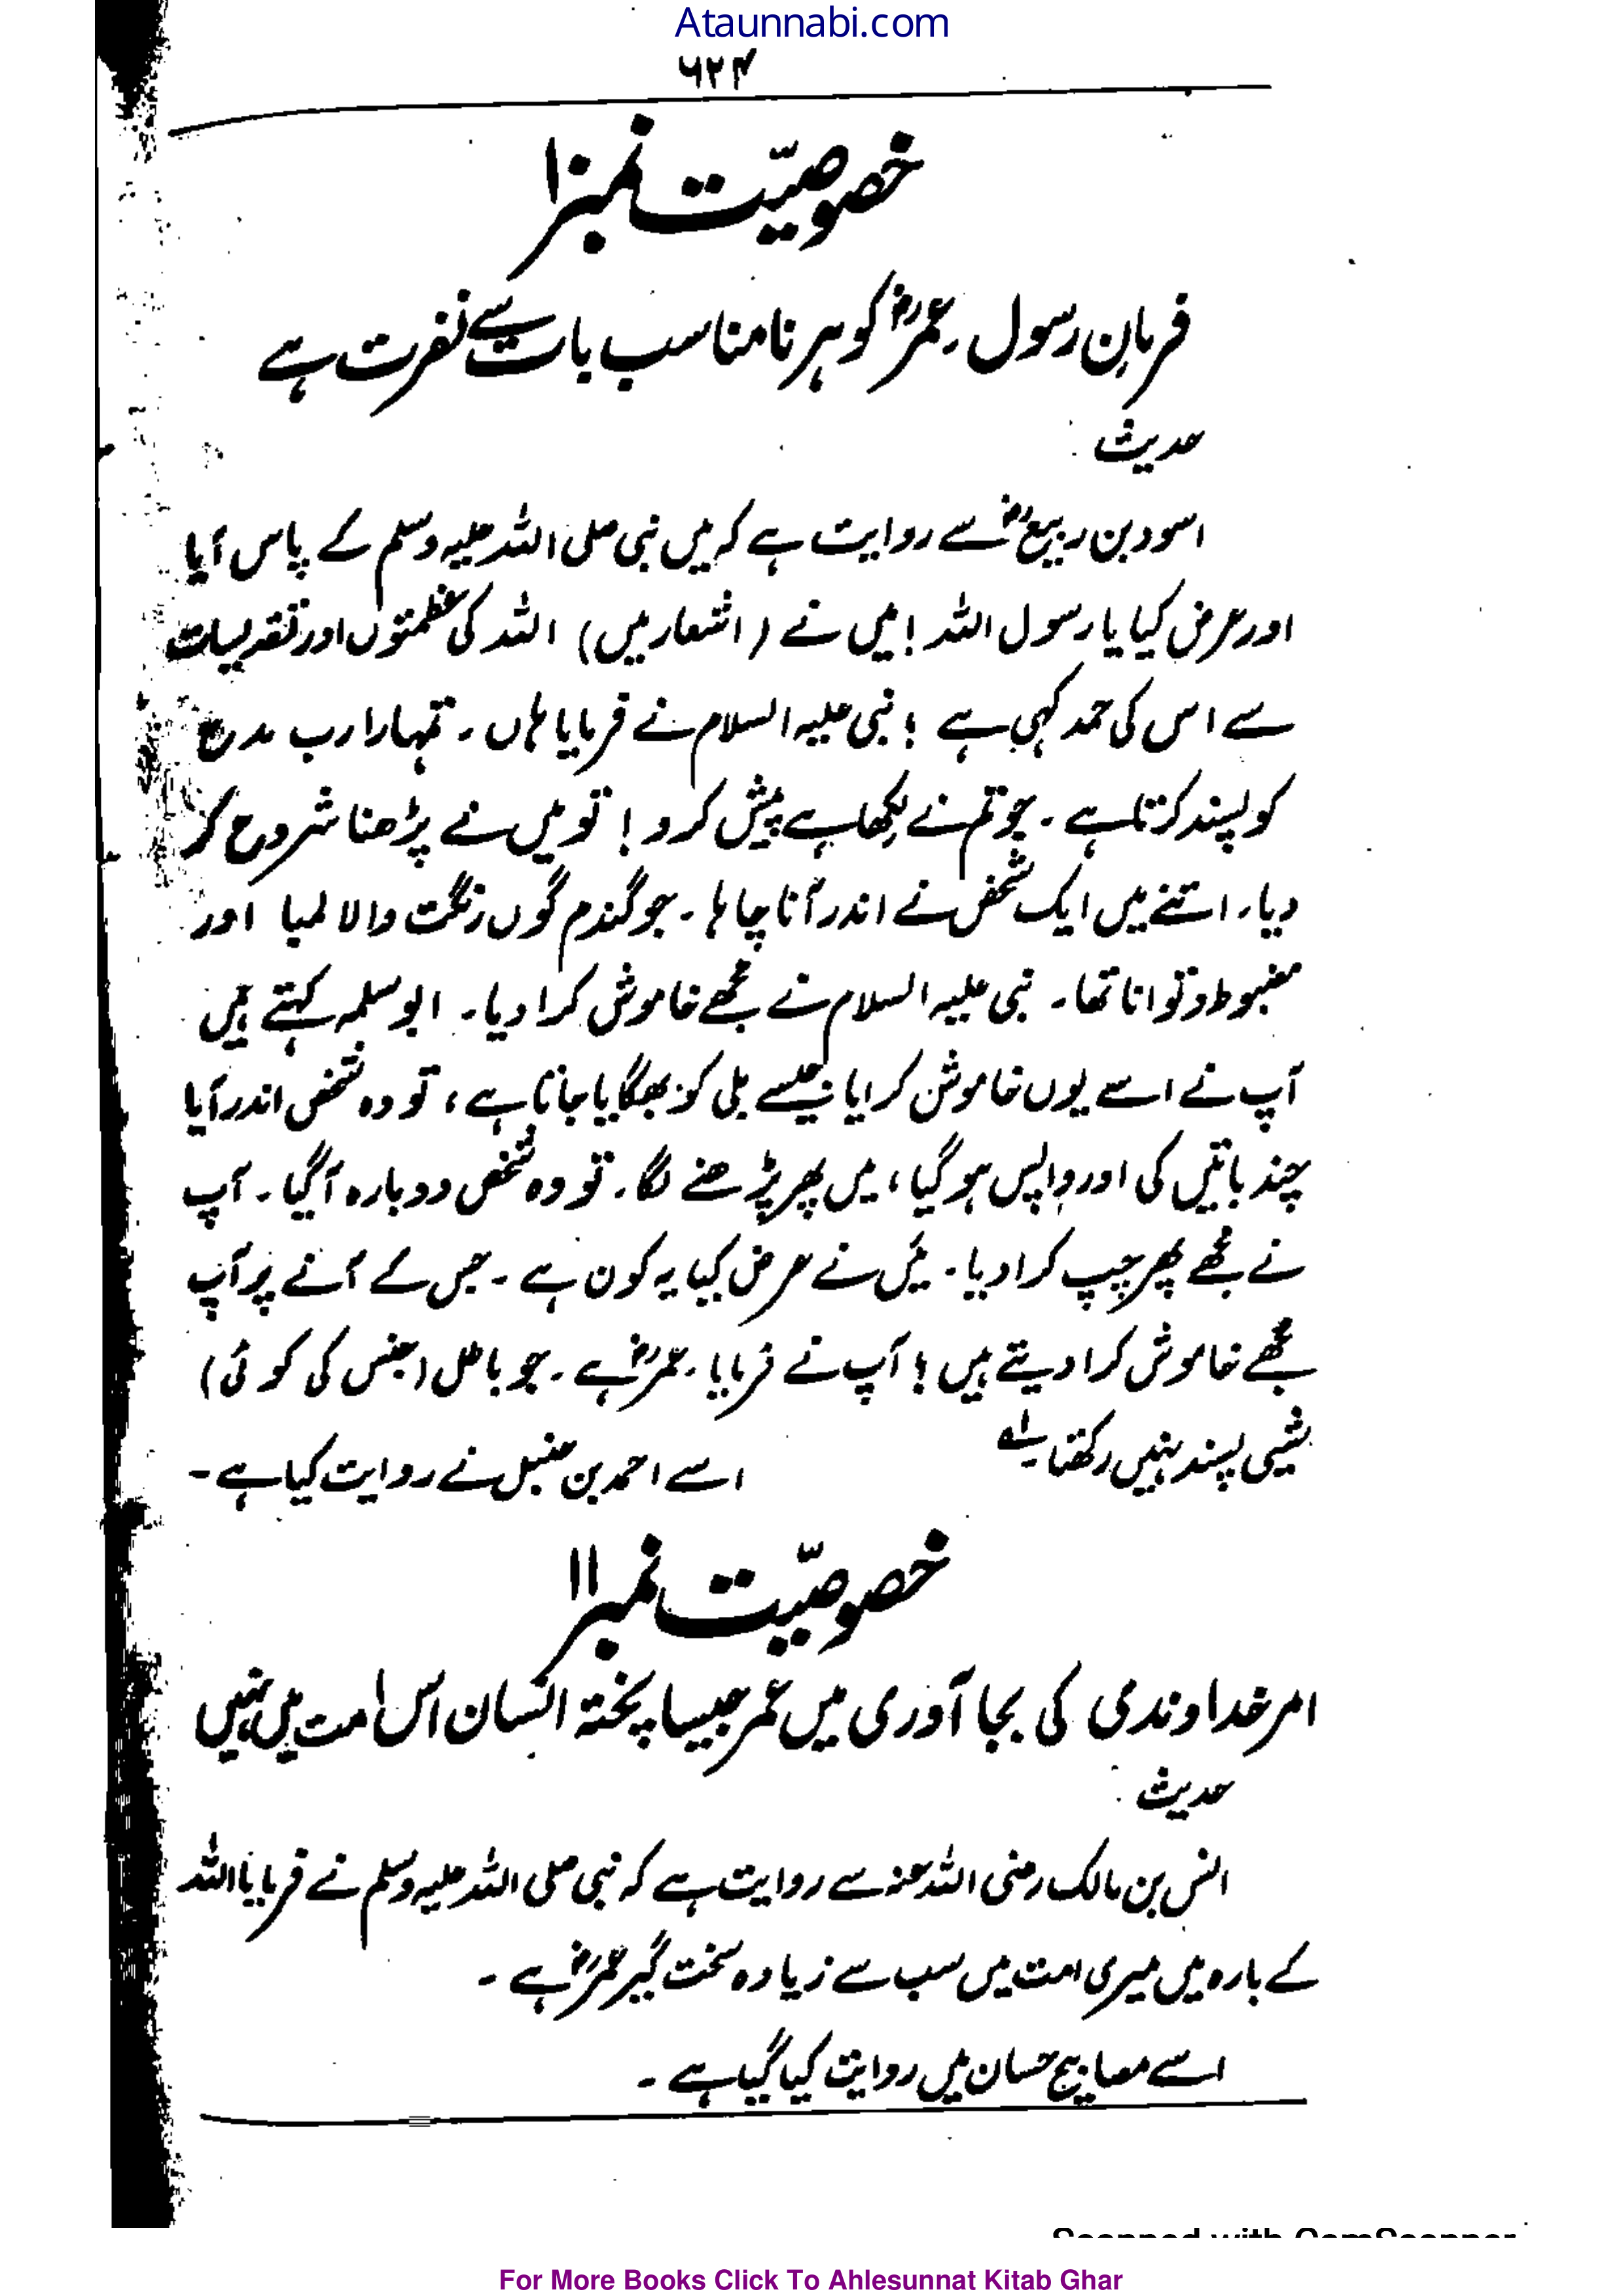 Ataunnabi.com
۶۲۴
خصوصیّت نمبر ۱۰
فرمانِ رسول۔ عمرؓ کو ہر نامناسب بات سے نفرت ہے
حدیث :
اسود بن ربیعؓ سے روایت ہے کہ میں نبی صلی اللہ علیہ وسلم کے پاس آیا
اور عرض کیا یا رسول اللہ! میں نے (اشعار میں) اللہ کی عظمتوں اور تقدیسات
سے اس کی حمد کہی ہے ؛ نبی علیہ السلام نے فرمایا ہاں۔ تمہارا رب مدح
کو پسند کرتا ہے۔ جو تم نے لکھا ہے پیش کرو! تو میں نے پڑھنا شروع کر
دیا۔ اتنے میں ایک شخص نے اندر آنا چاہا۔ جو گندم گوں رنگت والا لمبا اور
مضبوط و توانا تھا۔ نبی علیہ السلام نے مجھے خاموش کرا دیا۔ ابو سلمہ کہتے ہیں
آپ نے اسے یوں خاموش کرایا جیسے بلی کو بھگایا جاتا ہے، تو وہ شخص اندر آیا
چند باتیں کی اور واپس ہو گیا، میں پھر پڑھنے لگا۔ تو وہ شخص دوبارہ آگیا۔ آپ
نے مجھے پھر چپ کرا دیا۔ میَں نے عرض کیا یہ کون ہے۔ جس کے آنے پر آپ
مجھے خاموش کرا دیتے ہیں ؛ آپ نے فرمایا۔ عمرؓ ہے۔ جو باطل (جنس کی کوئی)
شیی پسند نہیں رکھتا۔ لہ
اسے احمد بن حنبل نے روایت کیا ہے۔
خصوصیّت نمبر ۱۱
امر خداوندی کی بجا آوری میں عمر جیسا پختہ انسان اس امت میں نہیں
حدیث :
انس بن مالک رضی اللہ عنہ سے روایت ہے کہ نبی صلی اللہ علیہ وسلم نے فرمایا اللہ
کے بارہ میں میری امت میں سب سے زیادہ سخت گیر عمرؓ ہے۔
اسے مصابیح حسان میں روایت کیا گیا ہے۔
Scanned with CamScanner
For More Books Click To Ahlesunnat Kitab Ghar